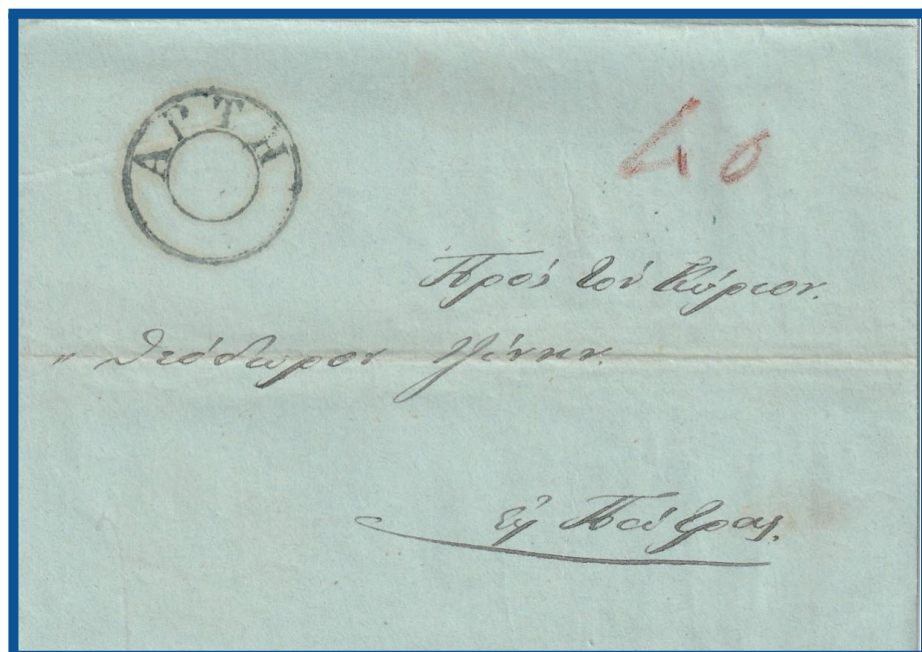 ΑΡΤΗ
40
Πρὸς τὸν Κύριον.
" Θεόδωρον
Εἰς Πάτρας.